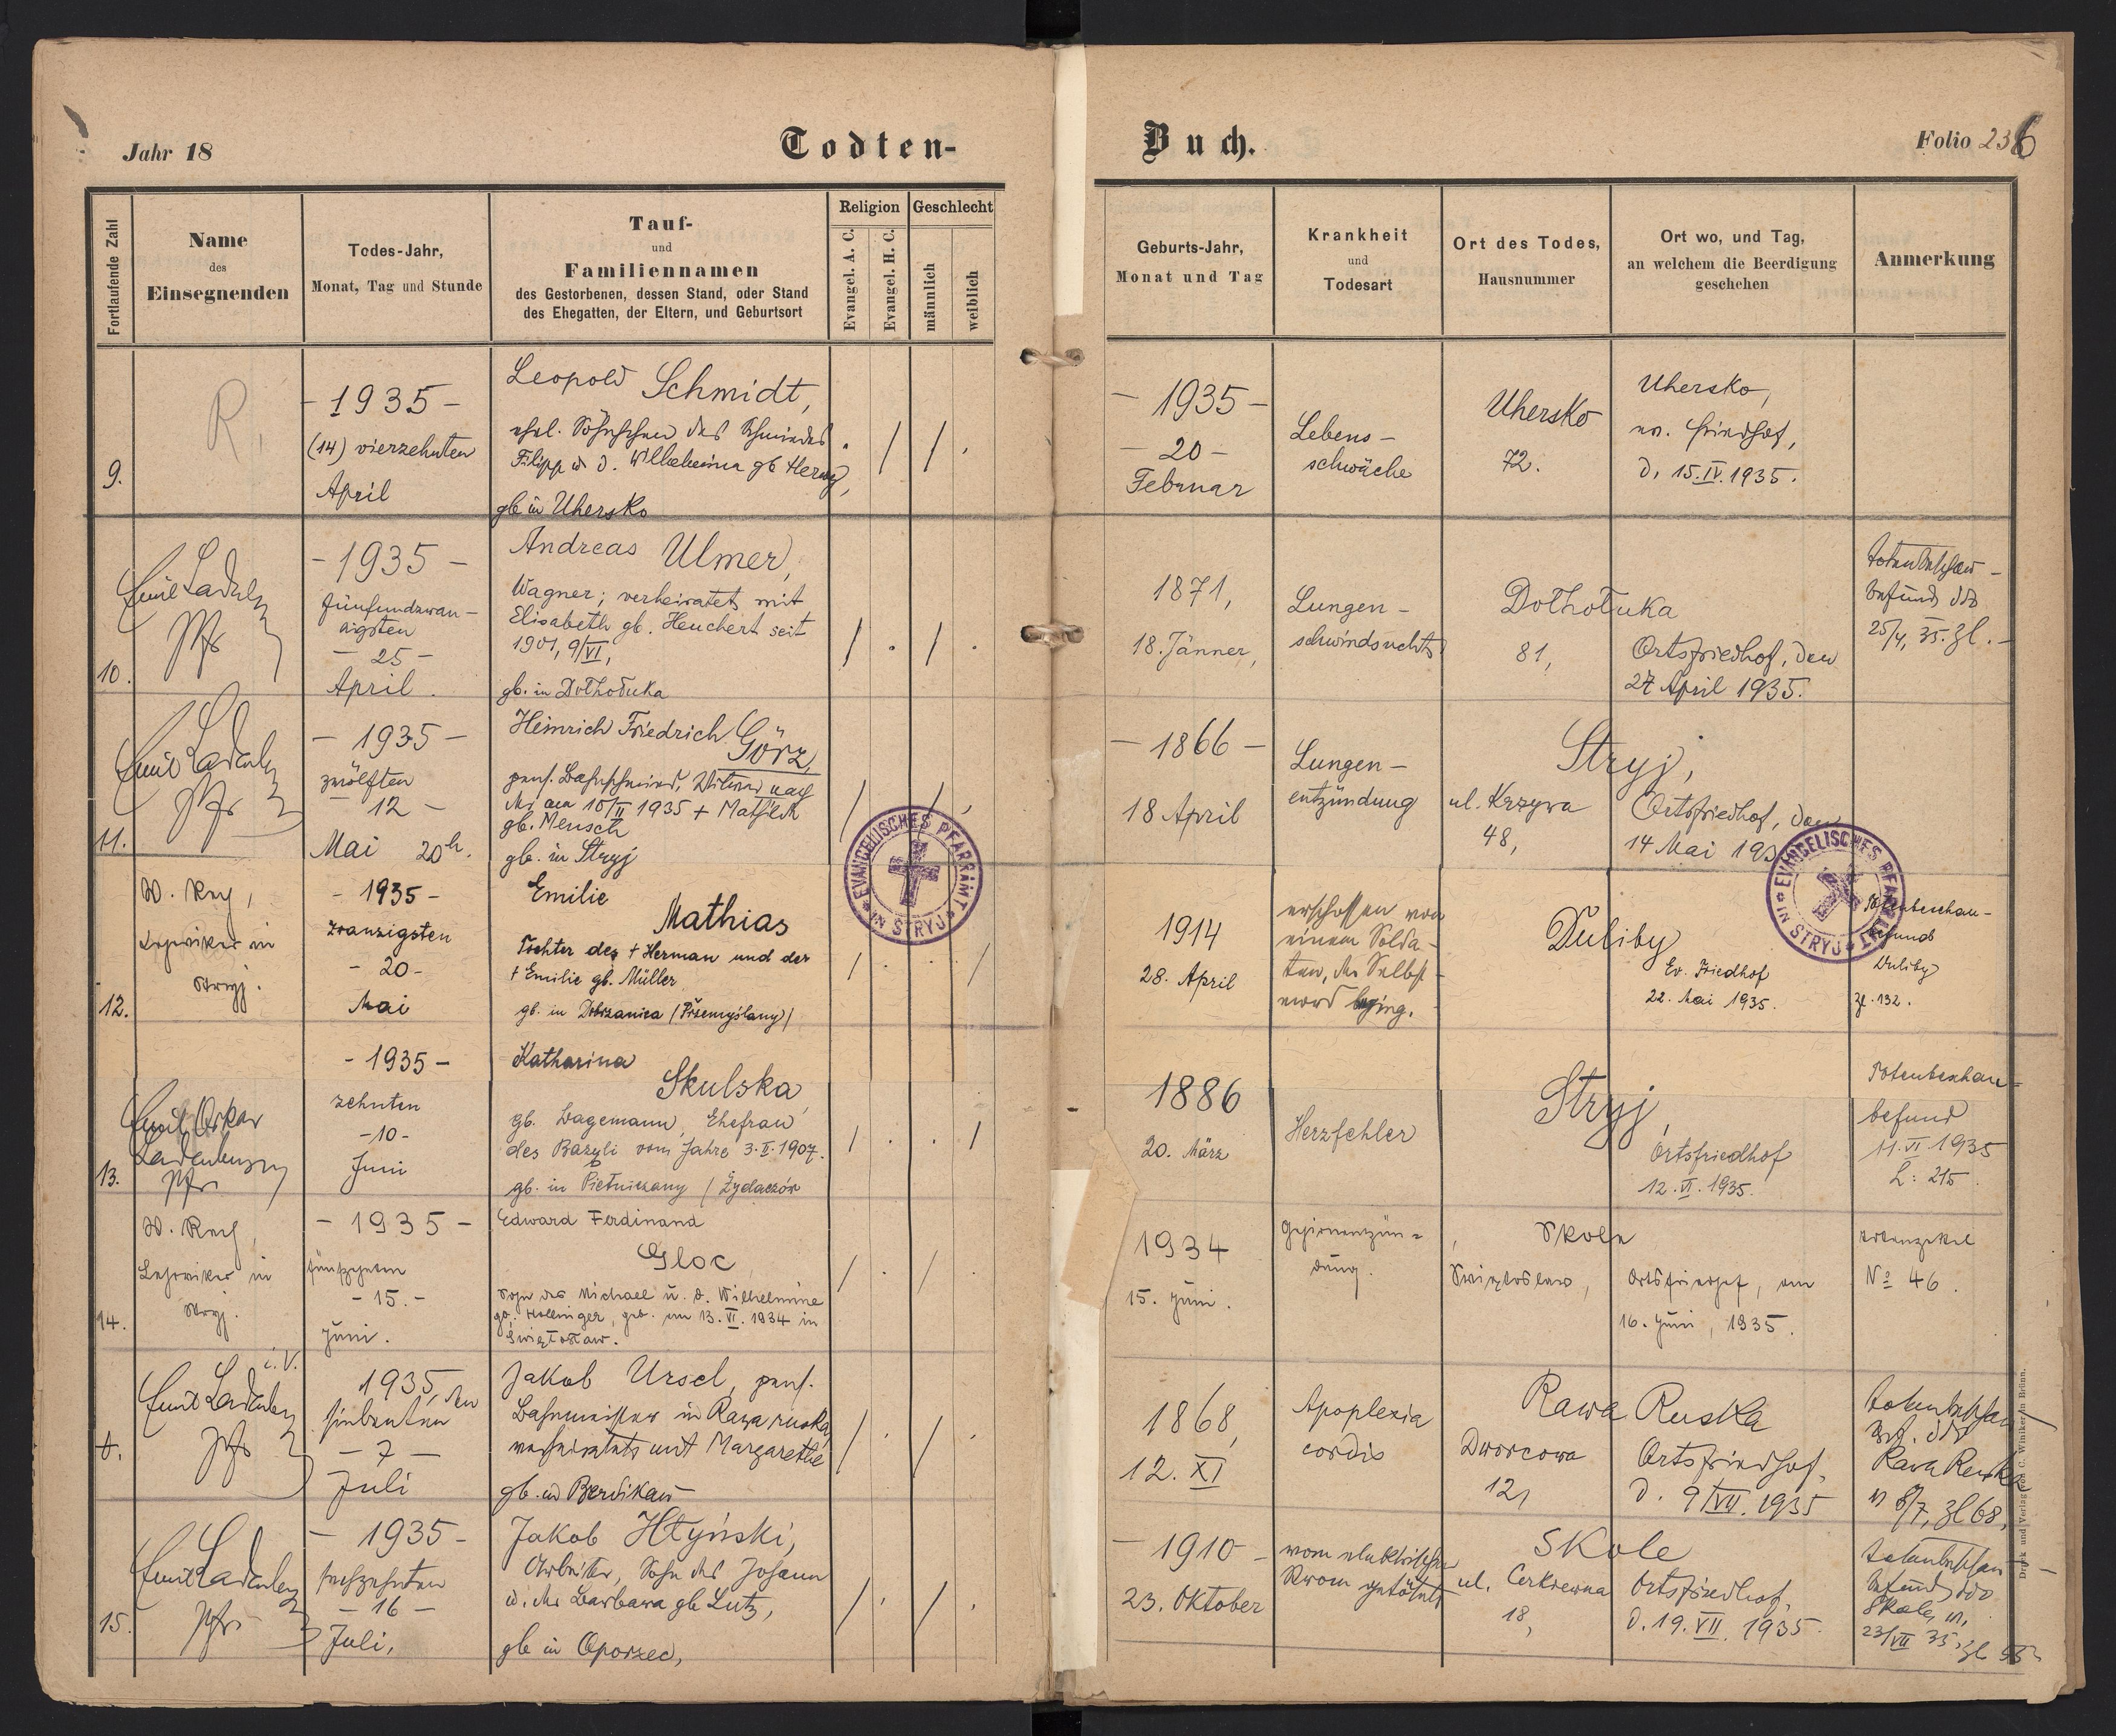 Jahr 18
Todten-
Fortlaufende Zahl
Name
des
Einsegnenden
Todes-Jahr,
Monat, Tag und Stunde
Tauf-
und
Familiennamen
des Gestorbenen, dessen Stand, oder Stand
des Ehegatten, der Eltern, und Geburtsort
Religion
Evangel. A. C.
Evangel. H. C.
Geschlecht
männlich
weiblich
9.
R.
- 1935 -
(14) vierzehnten
April
Leopold Schmidt,
ehel. Söhnchen des Schmiedes
Filipp u. d. Wilhelmina gb Herzog,
gb in Uhersko
10.
Emil Ladenb
Pfr
- 1935 -
fünfundzwan-
zigsten
- 25 -
April.
Andreas Ulmer,
Wagner; verheiratet mit
Elisabeth gb. Heuchert seit
1901, 9/VI,
gb. in Dołhołuka
11.
Emil Ladenb
Pfr
- 1935 -
zwölften
- 12 -
Mai 20h.
Heinrich Friedrich Görz,
pens. Bahnschmied, Witwer nach
der am 10/II 1935 +
gb. Mensch
gb. in Stryj
12.
W. Rey,
in
Stryj.
- 1935 -
zwanzigsten
- 20 -
Mai
Emilie
Mathias
Tochter des + Herman und der
+ Emilie gb. Müller
gb. in Dobrzanica (Przemyślany)
13.
Emil Oskar
Ladenberger
Pfr
- 1935 -
zehnten
- 10 -
Juni
Katharina
Skulska,
gb. Wagemann, Ehefrau
des Bazyli vom Jahre 3.II.1907.
gb. in Pietniczany / Żydaczów
14.
W. Rey,
in
Stryj.
- 1935 -
fünfzehnten
- 15. -
Juni.
Edward Ferdinand
Gloc
Sohn des Michael u. d. Wilhelmine
gb. Hollinger, geb. am 13. VI. 1934 in
Świętosław.
t.
i. V.
Emil Ladenb
Pfr
1935, den
siebenten
- 7 -
Juli
Jakob Ursel, pens.
Bahnmeister in Rawa ruska,
verheiratet mit Margarethe
gb. in Berdikau
15.
Emil Ladenberg
Pfr
- 1935 -
sechzehnten
- 16 -
Juli,
Jakob Hłyński,
Arbeiter, Sohn des Johann
u. der Barbara gb Lutz,
gb in Oporzec,
EVANGELISCHES PFARRAMT
* IN STRYJ *
Buch.
Folio 236
Geburts-Jahr,
Monat und Tag
Krankheit
und
Todesart
Ort des Todes,
Hausnummer
Ort wo, und Tag,
an welchem die Beerdigung
geschehen
Anmerkung
- 1935 -
- 20 -
Februar
Lebens-
schwäche
Uhersko
72.
Uhersko,
ev. Friedhof,
d. 15.IV.1935.
1871,
18. Jänner,
Lungen-
schwindsucht
Dołhołuka
81,
Ortsfriedhof, den
27 April 1935.
Totenbeschau-
befund ddo
25/4, 35. Zl. -
- 1866 -
18 April
Lungen-
entzündung
Stryj,
ul. Krzywa
48,
Ortsfriedhof, den
14 Mai 193
EVANGELISCHES PFARRAMT
* IN STRYJ *
1914
28. April
erschossen von
einem Solda-
ten, der Selbst-
mord beging.
Duliby
Ev. Friedhof
22. Mai 1935.
Totenbeschau-
befund
Duliby
Zl. 132.
1886
20. März
Herzfehler
Stryj,
Ortsfriedhof
12. VI. 1935.
Totenbeschau-
befund
11.VI 1935
L: 215
1934
15. Juni.
Gehirnentzün-
dung.
Skole
Świętosław,
Ortsfriedhof, am
16. Juni, 1935.
Totenzettel
No 46
1868,
12. XI
Apoplexia
cordis
Rawa Ruska
Dworcowa
12,
Ortsfriedhof,
d. 9/VII. 1935
Totenbeschau
Bef. ddo
Rawa Ruska
8/7, Zl 68,
- 1910 -
23. Oktober
vom elektrischen
Strom getötet
Skole
ul. Cerkiewna
18,
Ortsfriedhof,
d. 19. VII. 1935.
Totenbeschau
befund ddo
Skole,
23/VII 35, Zl
Druck und Verlag von C. Winiker in Brünn.